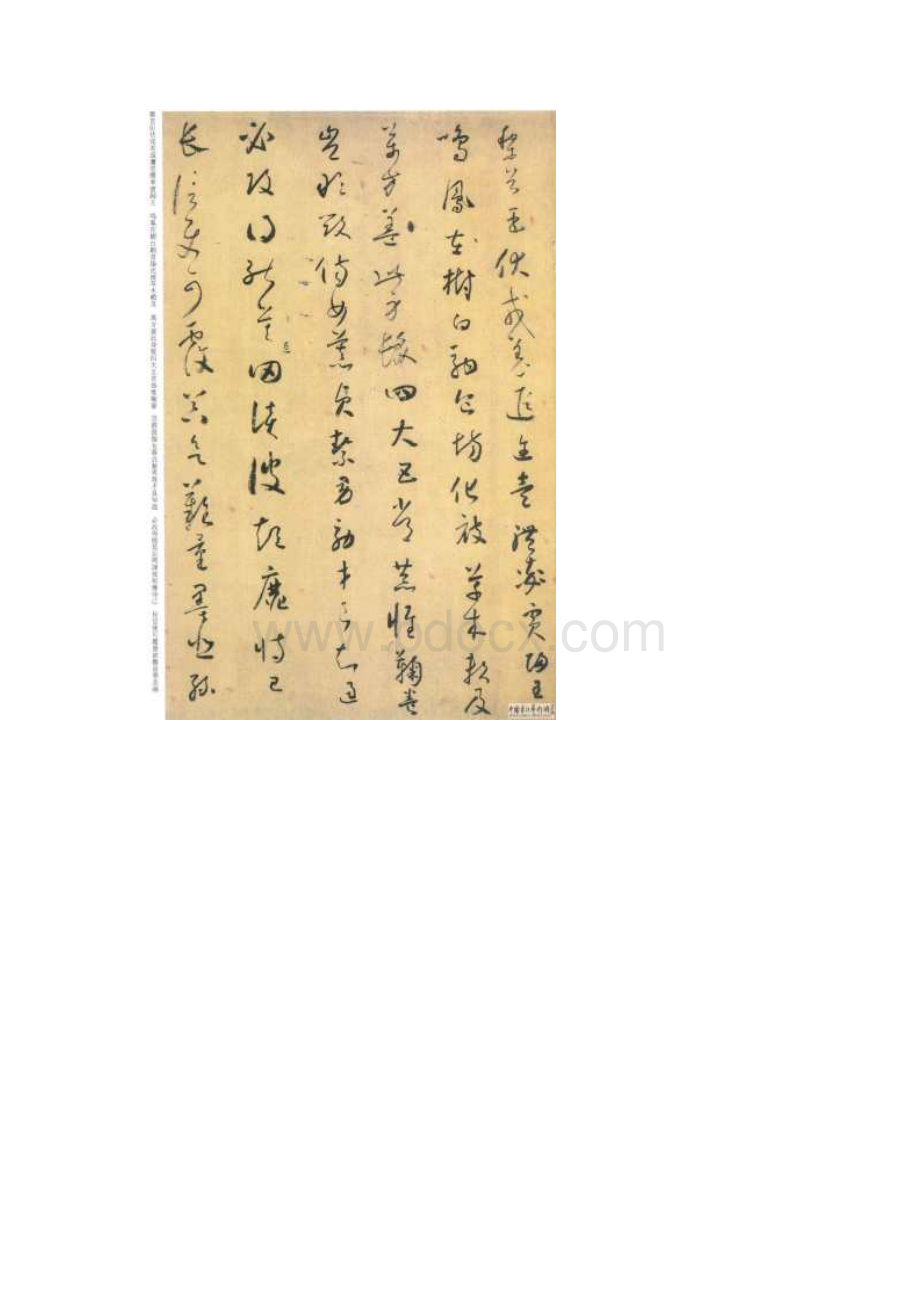 黎首臣伏戎羌遐邇壹體率賓歸王
鳴鳳在樹白駒食場化被草木賴及
萬方蓋此身髮四大五常恭惟鞠養
豈敢毀傷女慕貞絜男效才良知過
必改得能莫忘罔談彼短靡恃己
長信使可覆器欲難量墨悲絲
www.bdocx.com